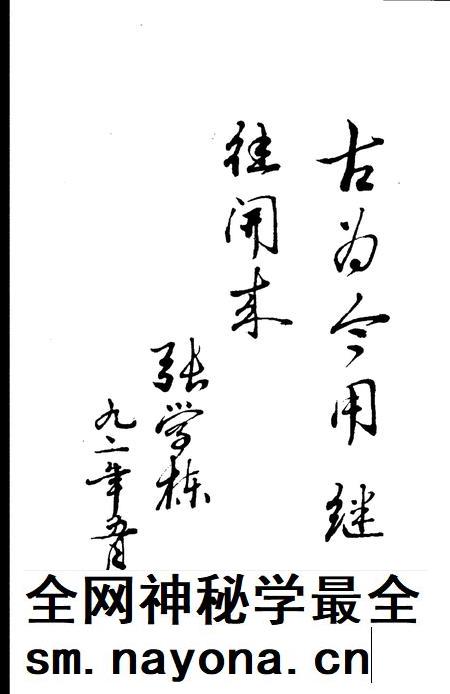 古为今用继
往开来
张学栋
九二年五月
全网神秘学最全
sm.nayona.cn